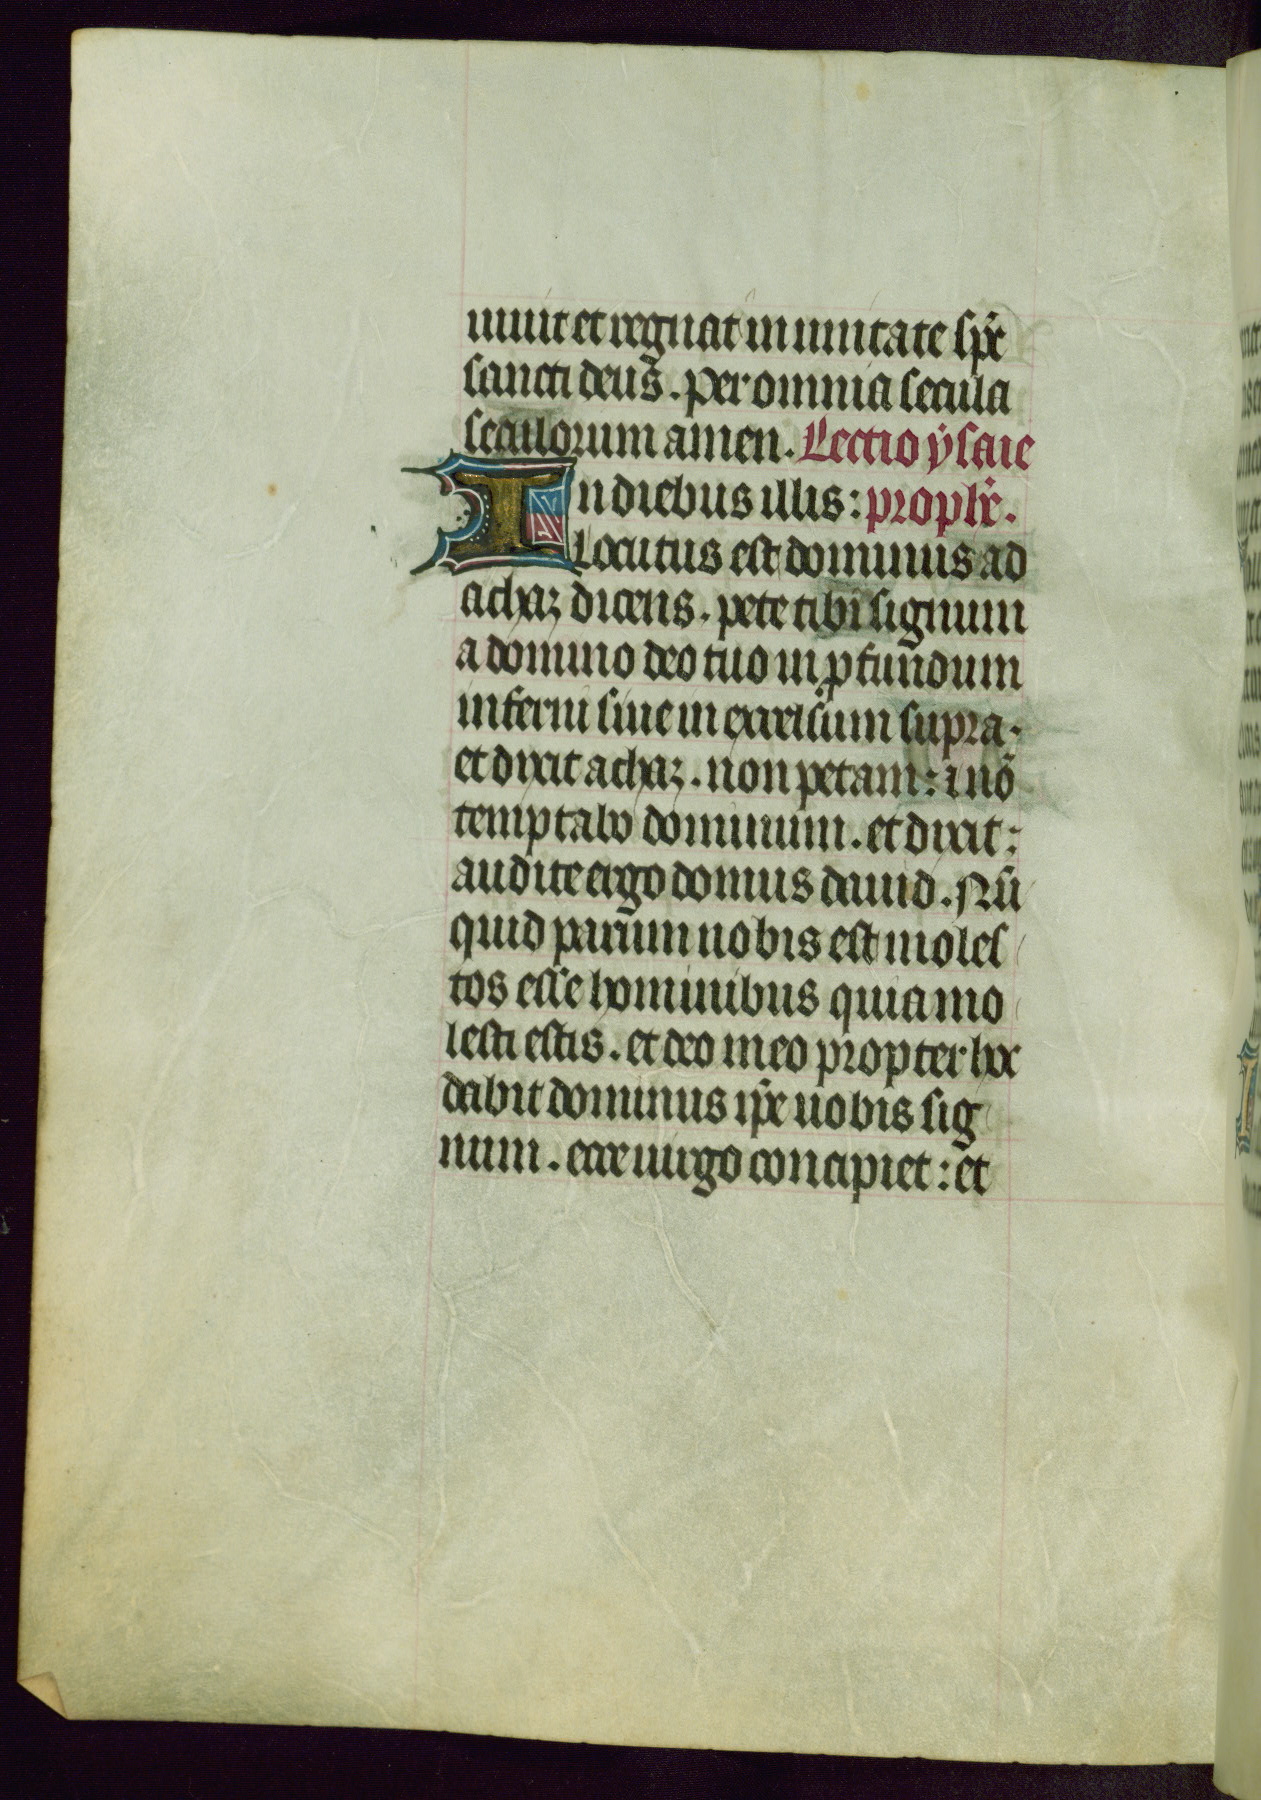 uiuit et regnat in unitate sp̄c
sancti deus. per omnia secula
seculorum amen. Lectio ẏsaie
In diebus illis: prophē.
Locutus est dominus ad
achaz dicens. pete tibi signum
a domino deo tuo in ꝓfundum
inferni siue in excelsum supra.
et dixit achaz. non petam: ⁊ nō
temptabo dominum. et dixit:
audite ergo domus dauid. Nū
quid parum uobis est moles
tos esse hominibus quia mo
lesti estis. et deo meo propter hoc
dabit dominus ip̄e uobis sig
num. ecce uirgo concipiet: et